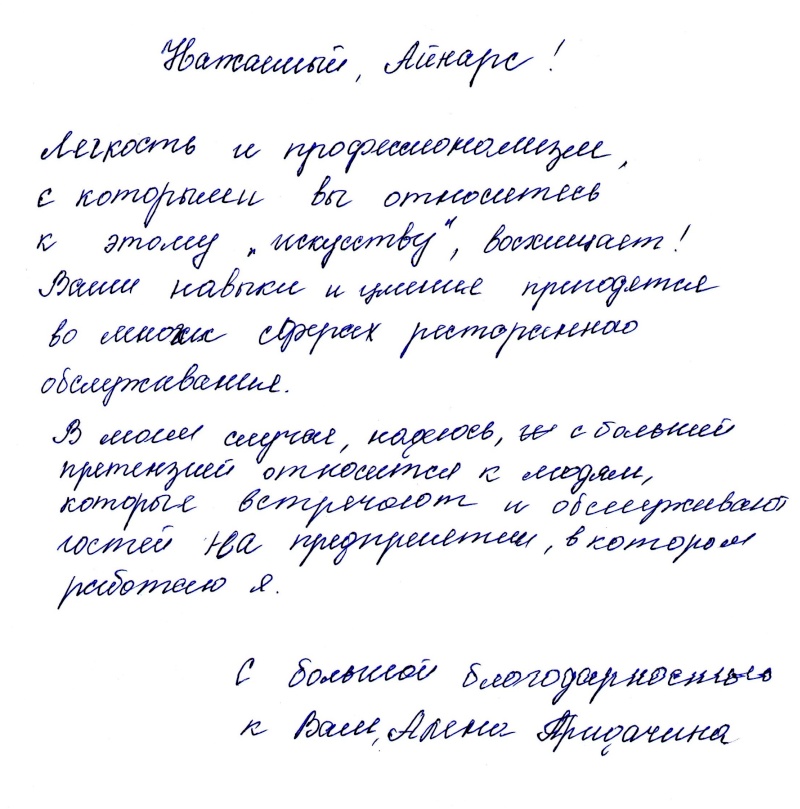 Уважаемый, Айнарс!
Легкость и профессионализм,
с которыми вы относитесь
к этому „искусству“, восхищает!
Ваши навыки и умение пригодятся
во многих сферах ресторанного
обслуживания.
В моем случае, надеюсь, с большей
претензией относится к людям,
которые встречают и обслуживают
гостей на предприятии, в котором
работаю я.
С большой благодарностью
к Вам, Алена Придачина